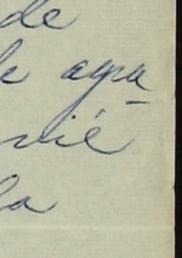 de
le agra
vié
la